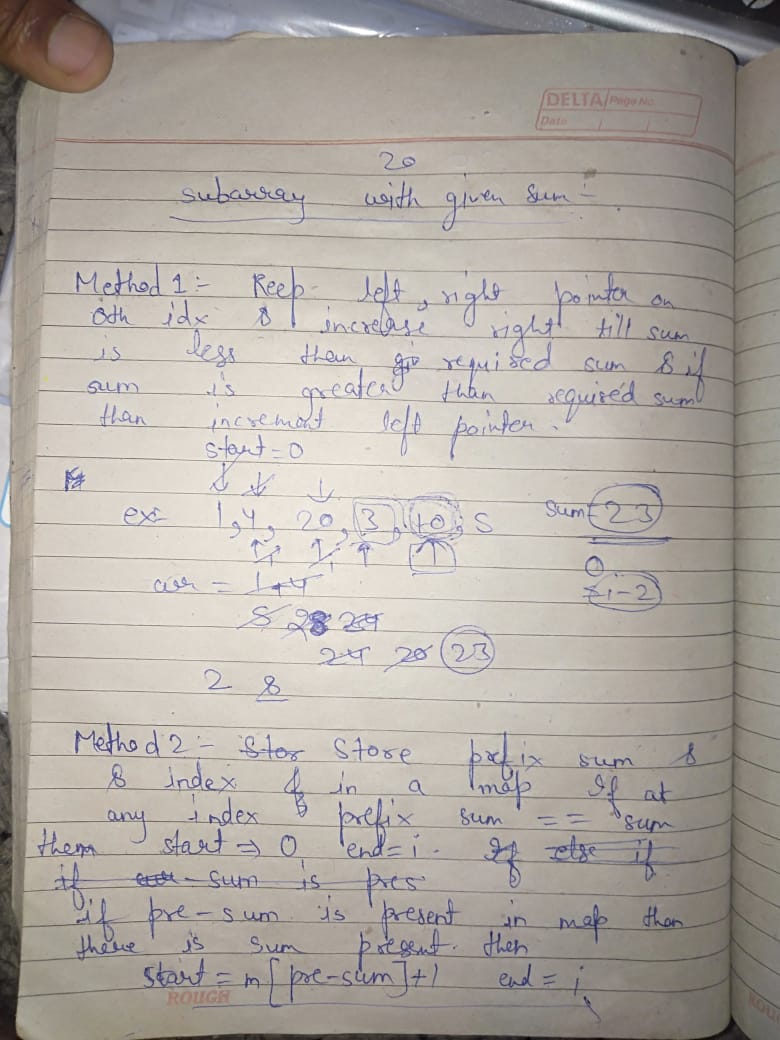 DELTA Page No.
Date
20
subarray with given sum :-
Method 1 :- Keep left, right pointer on
0th idx & increase right till sum
is less than required sum & if
sum is greater than required sum
than increment left pointer.
start = 0
ex:- 1, 4, 20, 3, 10, 5 sum = 23
0
arr = 1+4 i-2
5 28 24
24 20 23
2 8
Method 2 :- Store prefix sum &
& index in a map If at
any index prefix sum == sum
them start => 0, end = i. If else if
if sum is pres
if pre-sum is present in map than
there is sum present. then
start = m[pre-sum]+1 end = i
ROUGH